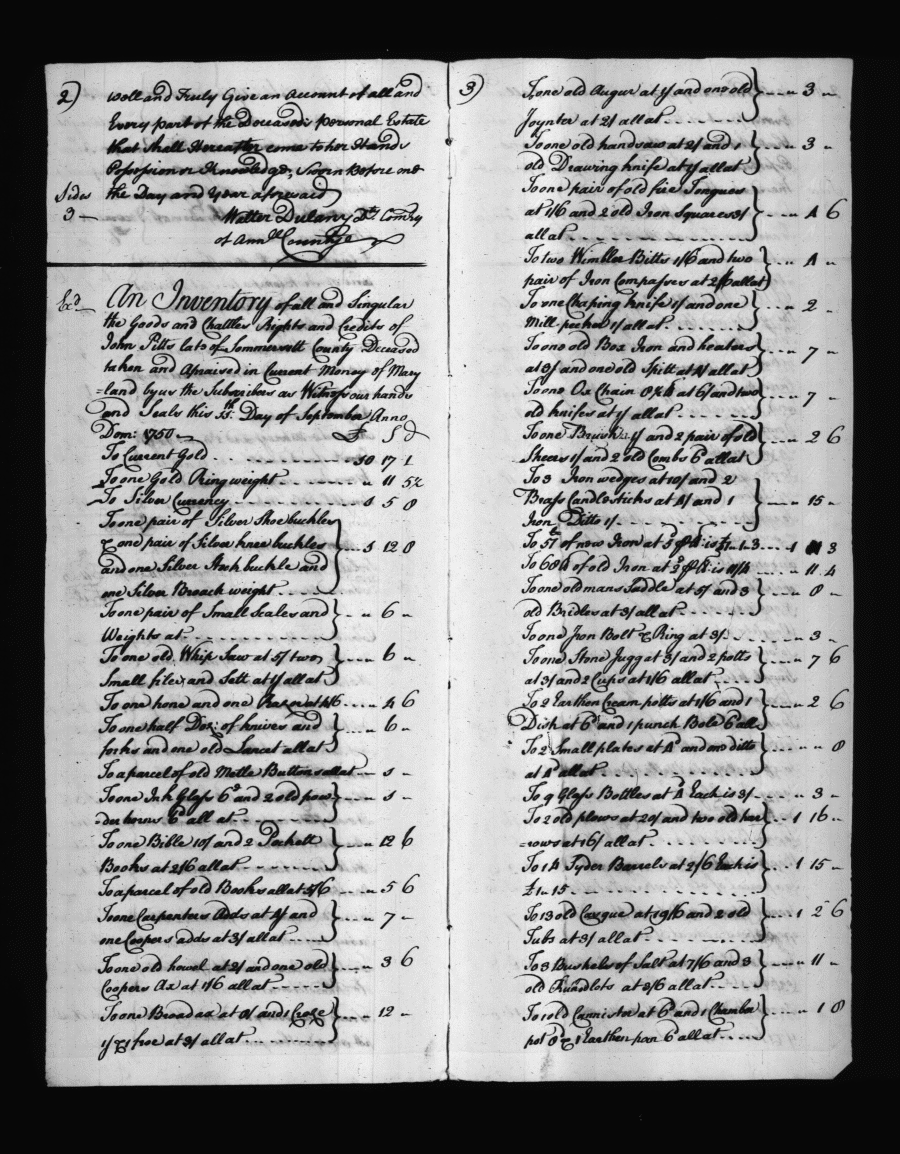 2)
well and Truly Give an Account of all and
Every part of the Deceaseds personal Estate
that Shall Hereafter come to her Hands
Possession or Knowledge, Sworn Before me
Sides the Day and Year aforesaid
3 — Walter Dulany Dty Comry
of Annl County
Exd An Inventory of all and Singular
the Goods and Chattles Rights and Credits of
John Pitts late of Sommersett County Deceased
taken and Apraised in Current Money of Mary
=land by us the Subscribers as Witness our hands
and Seals this Day of September Anno
Dom: 1750 £ S d
To Current Gold 50 17 1
To one Gold Ring weight " 11 5½
To Silver Currency 5 8
To one pair of Silver Shoe buckles
& one pair of Silver knee buckles 12 8
and one Silver Stock buckle and
one Silver Broach weight
To one pair of Small Scales and
Weights at " 6 "
To one old Whip Saw at 5/ two
Small files and Sett at 1/ all at " 6 "
To one hone and one Razor at 4/6 4 6
To one half Doz: of knives and
forks and one old Lancet all at " 6 "
To a parcel of old Mettle Buttons all at
To one Ink Glass 6d and 2 old pow
der horns 6d all at
To one Bible 10/ and 2 Pockett
Books at 2/6 all at " 12 6
To a parcel of old Books all at 5/6 " 5 6
To one Carpenters Adds at 4/ and
one Coopers adds at 3/ all at " 7 "
To one old howel at 2/ and one old
Coopers Ax at 1/6 all at " 3 6
To one Broad ax at 8/ and 1 Croze
1/ & 1 froe at 3/ all at " 12 "
3)
To one old Augur at 1/ and one old
Joynter at 2/ all at " 3 "
To one old handsaw at 2/ and 1
old Drawing knife at 1/ all at " 3 "
To one pair of old fire Tongues
at 1/6 and 2 old Iron Squares 3/
all at " 4 6
To two Wimbler Bitts 1/6 and two
pair of Iron Compasses at 2/6 all at " 4 "
To one Chaping knife 1/ and one
Mill-pecker 1/ all at " 2 "
To one old Box Iron and heaters
at 3/ and one old Spitt at 4/ all at " 7 "
To one Ox Chain at 6/ and two
old knifes at 1/ all at " 7 "
To one Brush 1/ and 2 pair of old
Sheers 1/ and 2 old Combs 6d all at " 2 6
To 3 Iron wedges at 10/ and 2
Brass Candlesticks at 4/ and 1
Iron Ditto 1/ " 15 "
To 57 lb of new Iron at 1 3
To 68 lb of old Iron at " 11 4
To one old mans Saddle at 5/ and 3
old Bridles at 3/ all at " 8 "
To one Iron Bolt & Ring at 3/ " 3 "
To one Stone Jugg at 3/ and 2 potts
at 3/ and 2 Cups at 1/6 all at " 7 6
To 2 Earthen Cream potts at 1/6 and 1
Dish at 6d and 1 punch Bole 6d all " 2 6
To 2 Small plates at 4d and one ditto
at 4d all at " " 8
To 9 Glass Bottles at 4 Each is 3/ " 3 "
To 2 old plows at 20/ and two old har
=rows at 16/ all at 1 16 "
To 14 Syder Barrels at 2/6 Each is
£1 " 15 1 15 "
To 13 old Casque at 19/6 and 2 old
Tubs at 3/ all at 1 2 6
To 3 Bushels of Salt at 7/6 and 3
old Rundlots at 3/6 all at " 11 "
To 1 old Cannister at 6d and 1 Chamber
pot 8d & 1 Earthen pan 6d all at " 1 8